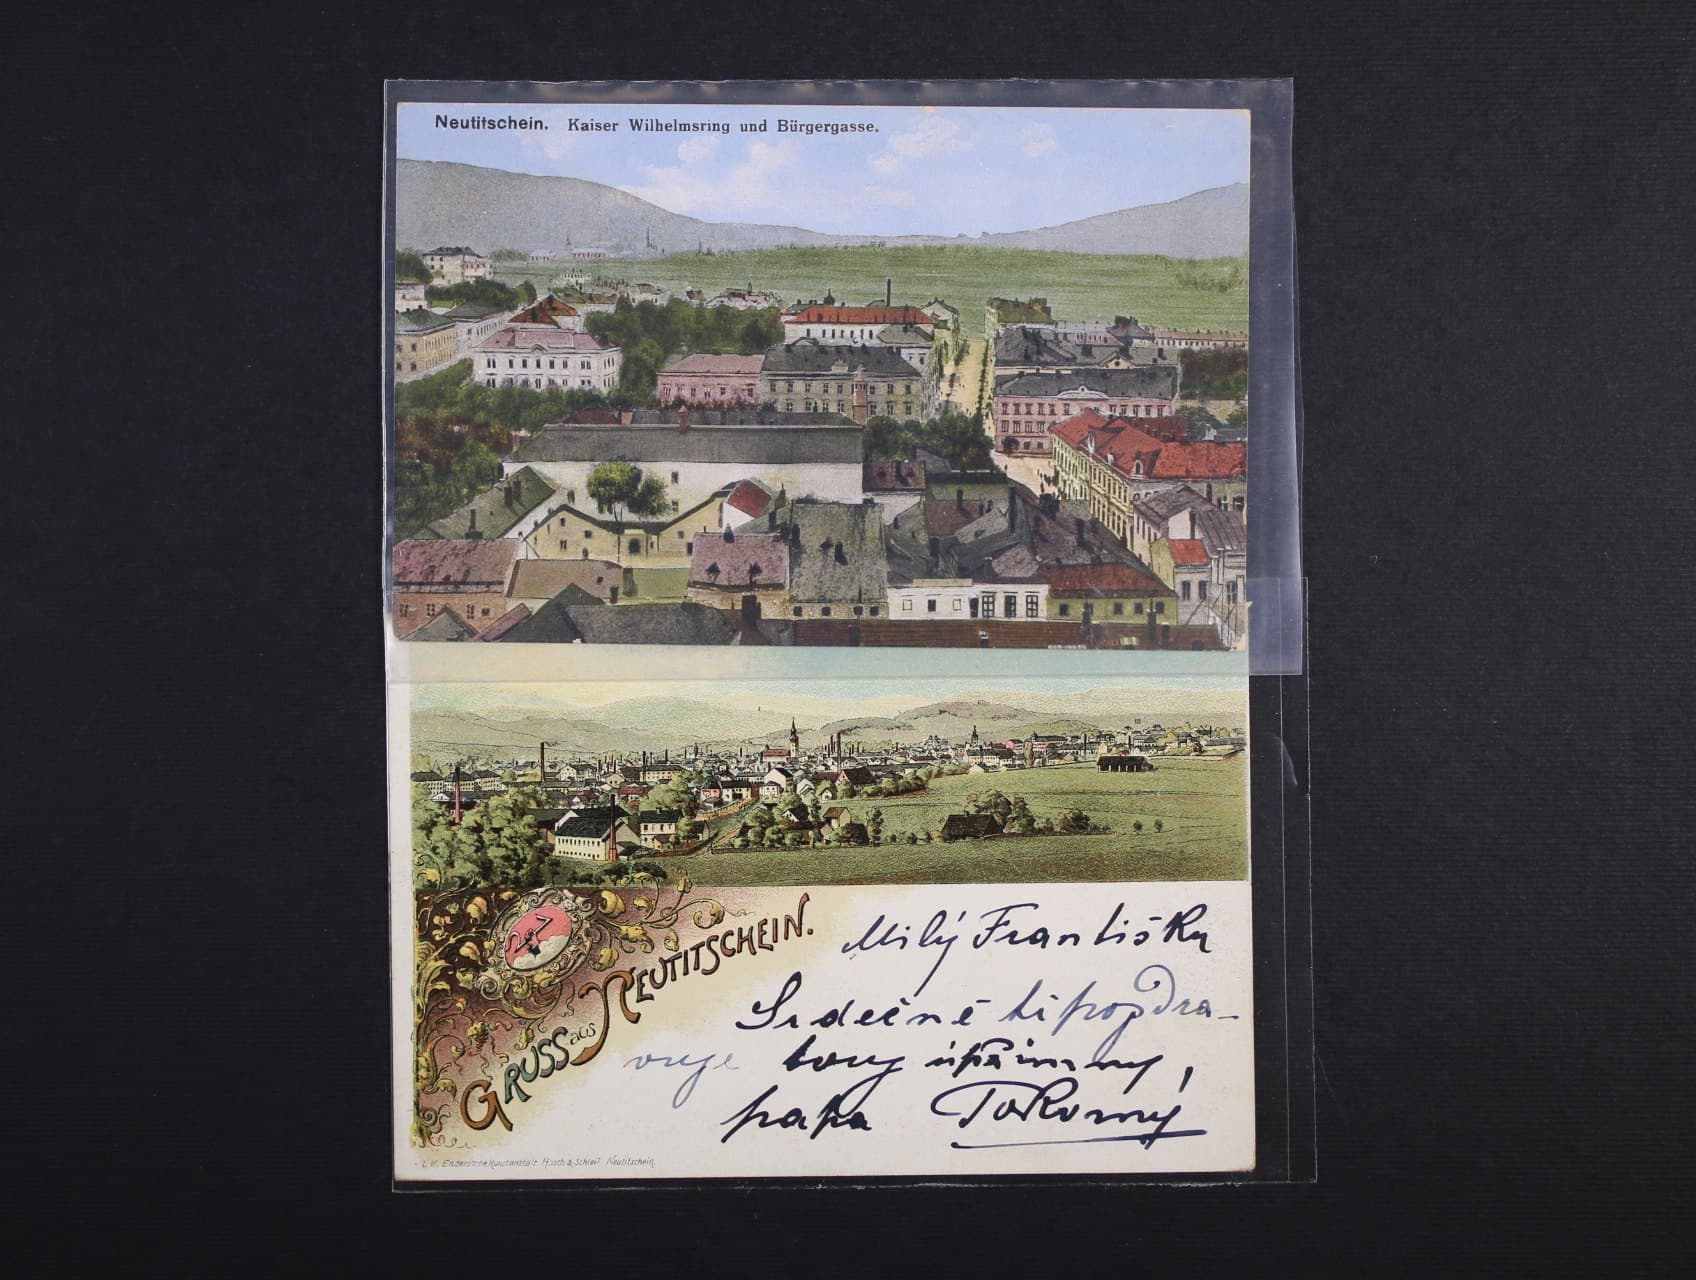 Neutitschein. Kaiser Wilhelmsring und Bürgergasse.
GRUSS aus NEUTITSCHEIN.
Milý Františku
Srdečně ti pozdra-
vuje tvůj upřímný,
papa Pokorný
L. V. Enders'sche Kunstanstalt Hosch & Schleif Neutitschein